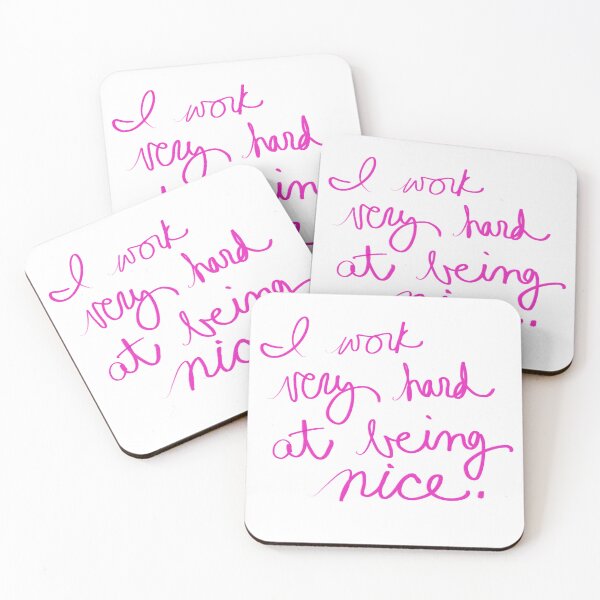 I work
very hard
I work
very hard
at being
I work
very hard
at being
I work
very hard
at being
nice.